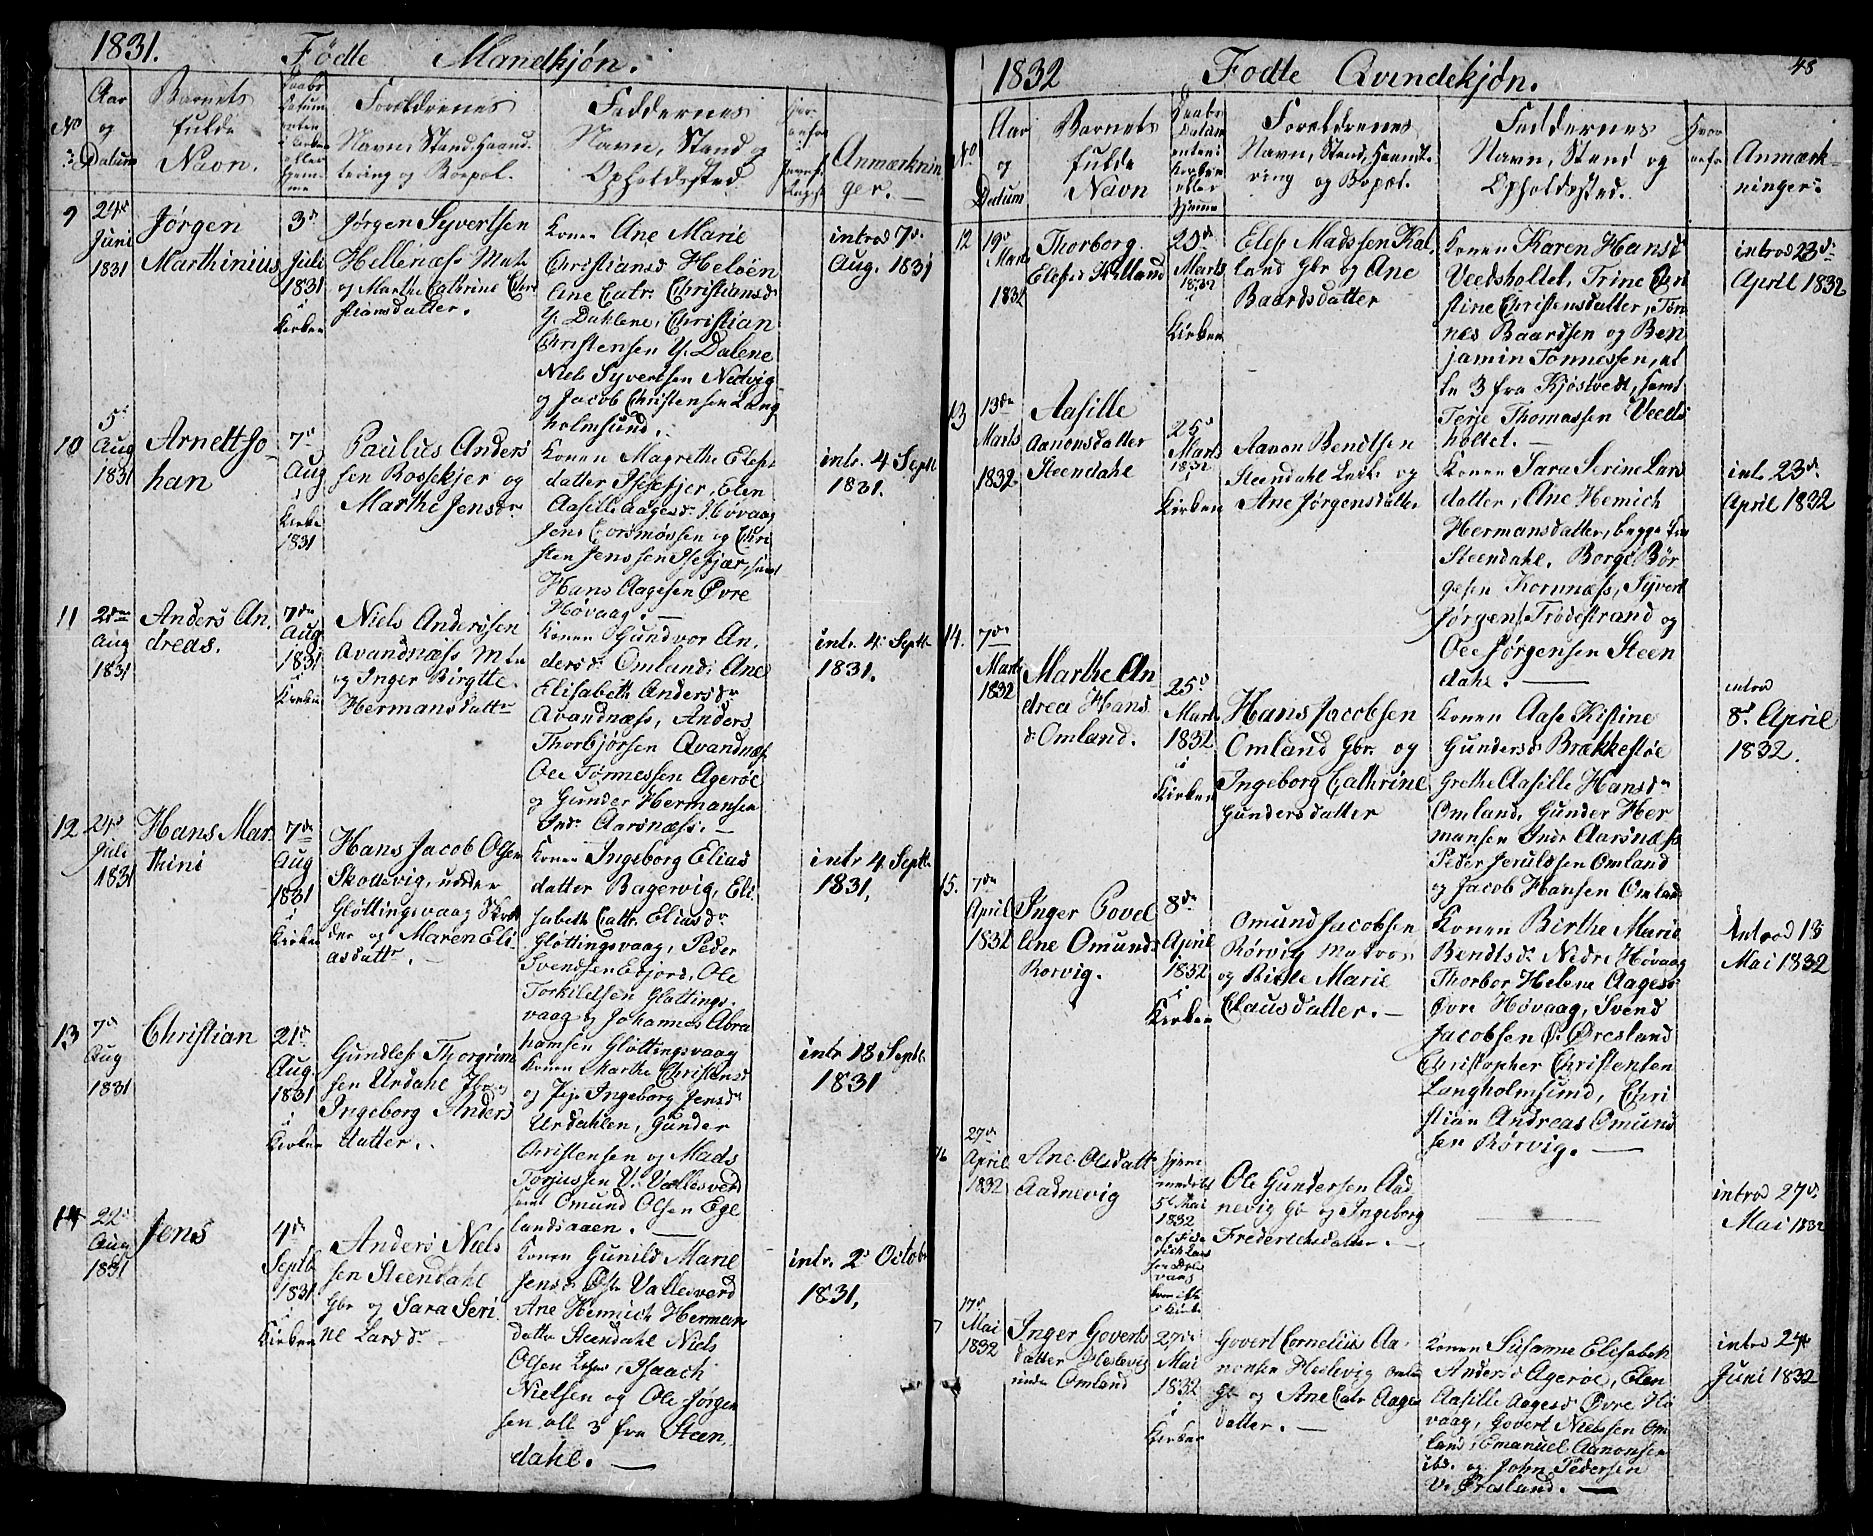 1831. Fødte Mandkjøn.
No
3.
Aar
og
Datum
Barnets
fulde
Navn.
Daabs
Datum
enten
i Kirken
eller
hjem-
me
Foreldrenes
Navn, Stand, Haand-
tering og Boepæl.
Faddernes
Navn, Stand og
Opholdssted.
Anmærknin
ger. —
9
24d
Juni
1831
Jørgen
Marthinius
3d
Juli
1831
i
Kirken
Jørgen Syvertsen
Hellenæss Mat.
og Marthe Cathrine Chri
stiansdatter.
Konen Ane Marie
Christiansd Heløen
Ane Catr. Christiansdr
Y. Dahlene, Christian
Christensen Y. Dalene
Niels Syvertsen Nedvig
og Jacob Christensen Lang
holmsund.
introd 7d
Aug. 1831
10
5d
Aug
1831
Arnelt Jo-
han
7d
Aug
i
Kirke
1831
Paulus Anders
sen Rossekjer og
Marthe Jensdr
Konen Magrethe Elefs
datter Isefjer, Elen
Aasille Aagesdr Høvaag
Jens Gorsmøssen og Chri
sten Jenssen Isefjær, samt
Hans Aagesen Øvre
Høvaag. —
intr. 4 Septb
1831.
11
2den
Aug
1831
Anders An.
dreas.
7de
Aug
1831
i
Kirken
Niels Andersen
Avandnæss Mtr
og Inger Birgtte
Hermansdattr
Konen Gundvor An.
dersdr Omland, Ane
Elisabeth Andersdr
Avandnæss, Anders
Thorbjørsen Avandnæs
Ole Tønnessen Agerøe
og Gunder Hermansen
Indr Aarsnæss. —
intr 4 Septb
1831.
12
24d
Juli
1831
Hans Mar
thini
7de
Aug
1831
i
Kirken
Hans Jacob Olsen
Skottevig, under
Gløttingsvaag Skræd
der og Maren Eli
asdattr. —
Konen Ingeborg Elias
datter Bagervig, Eli
sabeth Catr. Eliasdr
Gløttingsvaag, Peder
Svendsen Edjord, Ole
Torkildsen Gløttings.
vaag og Johannes Abra
hamsen Gløttingsvaag
intr 4 Septb
1831,
13
7d
Aug
1831
Christian
21d
Aug.
1831
i
Kirken
Gundlef Thorgrim
sen Urdahl og
Ingeborg Anders
datter..
Konen Marthe Christensd
og Pige Ingeborg Jensdr
Urdahlen, Gunder
Christensen og Mads
Torjussen V. Vallesverd
samt Omund Olsen Ege
landsaaen. —
intr 18 Septr.
1831
14
22d
Aug
1831
Jens
4de
Septb
1831
i
Kirken
Anders Niels
sen Steendahl
Gbr og Sara Seri
ne Larsdr —
Konen Gunild Marie
Jensdr Østr Vallesverd
Ane Hemich Herman
datter Steendahl Niels
Olsen, Isaach
Nielsen og Ole Jørgen
sen all 3 fra Steen.
dahl. —
intr. 2d Octobr
1831,
1832 Fødte Qvindekjøn.
48
No
Aar
og
Datum
Barnets
fulde
Navn
Daabs
Datum
enten i
Kirken
eller
hjemme
Foreldrenes
Navn, Stand, Haandte
ring og Bopæl.
Faddernes
Navn, Stand og
Opholdssted.
Anmærk-
ninger.
12
19d
Marts
1832
Thorborg
Elefsd Kalland
25d
Marts
1832
i
Kirken
Elef Madssen Kal.
land Gbr og Ane
Baardsdatter
Konen Karen Hansd
Veedsholtet, Trine Chri
stine Christensdatter, Tøn
nes Baardsen og Ben
jamin Tønnessen, al
le 3 fra Kjøstvedt, samt
Terje Thomassen Veeds
holtet. —
introd 23d
April 1832
13
13de
Marts
1832
Aasille
Aanonsdatter
Steendahl
25d
Marts
1832
i
Kirken
Aanon Bendtsen
Steendahl og
Ane Jørgensdatter
Konen Sara Serine Lars
datter, Ane Hemich
Hermansdatter, begge fra
Steendahl, Borge Bør
gesen Kornnæss, Syvert
Jørgens Frødestrand og
Ole Jørgensen Steen
dahl. —
int. 23d
April 1832
14.
7de
Marts
1832
Marthe An
drea Hans
dr Omland.
25d
Marts
1832
i
Kirken
Hans Jacobsen
Omland Gbr og
Ingeborg Cathrine
Gundersdatter
Konen Aase Kistine
Gundersd Brækkestøe
Grethe Aasille Hansdr
Omland, Gunder Her
mansen Indr Aarsnæss
Peder Jeruldsen Omland
og Jacob Hansen Omland
introd
8d April
1832.
15.
7de
April
1832
Inger Povel
line Omunds
Rørvig.
8de
April
1832
i
Kirken
Omund Jacobsen
Rørvig Matros
og Birthe Marie
Clausdatter. —
Konen Birthe Marie
Bendtsd. Nedre Høvaag
Thorbor Helene Aagesd
Øvre Høvaag, Svend
Jacobsen Ø. Øresland
Christopher Christensen
Langholmsund, Chri
stian Andreas Omund
sen Rørvig. —
Introd 13
Mai 1832
16
27d
April
1832
Ane Olsdatter
Aadnevig
hjem
medøbt
5te Mai
1832
Ole Gundersen Aad
nevig Gb og Ingeborg
Frederichsdatter. —
introd 27d
Mai 1832
7
17d
Mai
1832
Inger Goverts
datter Heslevig
under Omland
27d
Mai
1832
i
Kirken
Govert Cornelius Aa
nonsen Heslevig Omla
Gb og Ane Catr Aages
datter. —
Konen Susanne Elisabeth
Andersd Agerøe, Elen
Aasille Aagesd Øvre Hø
vaag, Govert Nielssen Om
land, Emanuel Aanonsen
ibd. og John Pedersen
V. Øresland. —
introd 24d
Juni 1832